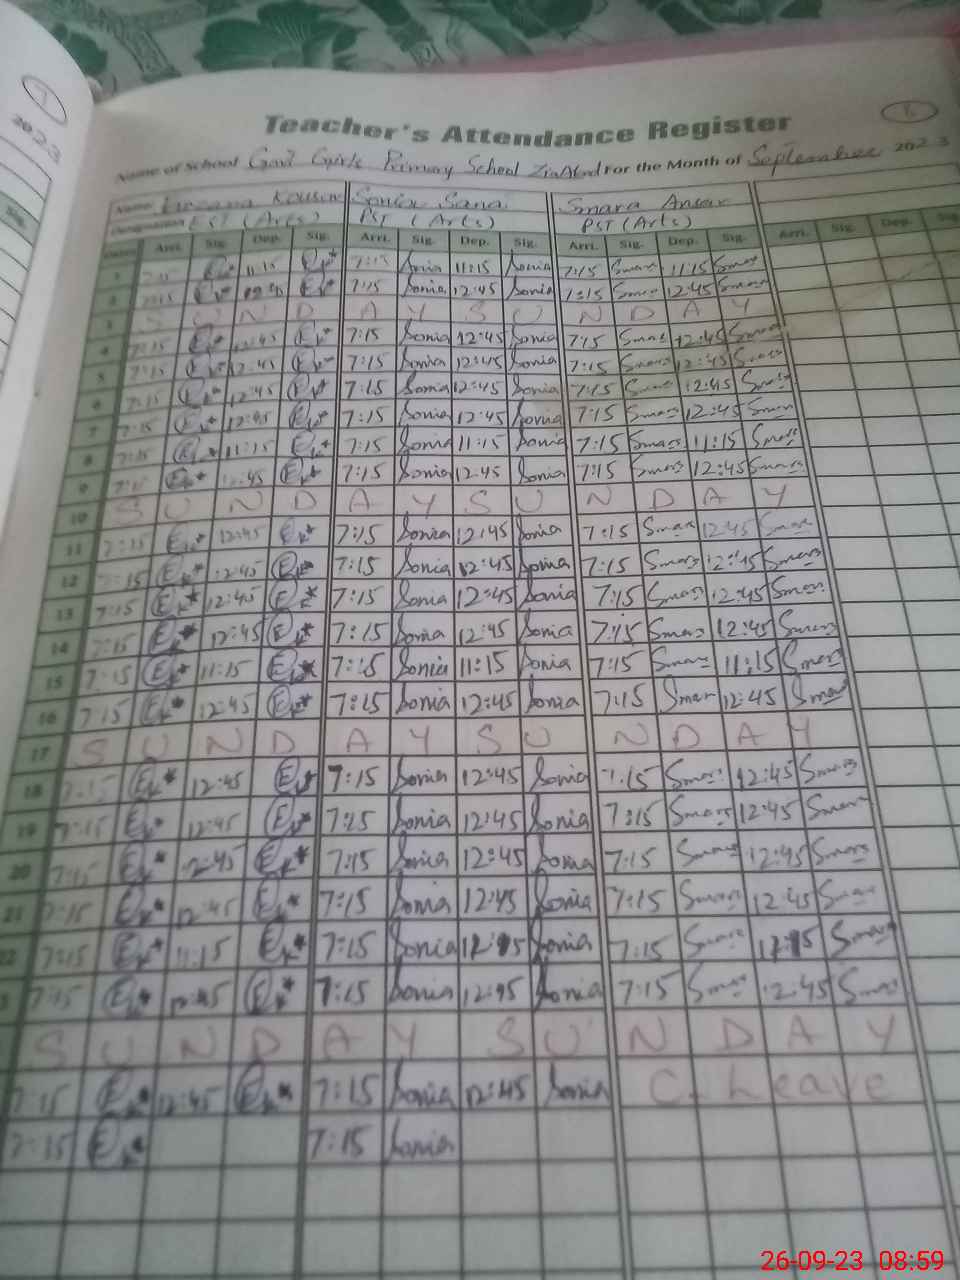 2023
Sig.
6
Teacher's Attendance Register
Name of School Govt Girls Primary School ZiaAbad For the Month of September 2023
Name Kousar Sonia Sana Smara Ansar
Designation EST (Arts) PST (Arts) PST (Arts)
Dates Arri. Sig. Dep. Sig. Arri. Sig. Dep. Sig. Arri. Sig. Dep. Sig. Arri. Sig. Dep. Sig.
1 7:15 11:15 7:15 Sonia 11:15 Sonia 7:15 Smara 11:15 Smara
2 7:15 12:45 7:15 Sonia 12:45 Sonia 7:15 Smara 12:45 Smara
3 S U N D A Y S U N D A Y
4 7:15 12:45 7:15 Sonia 12:45 Sonia 7:15 Smara 12:45 Smara
5 7:15 12:45 7:15 Sonia 12:45 Sonia 7:15 Smara 12:45 Smara
6 7:15 12:45 7:15 Sonia 12:45 Sonia 7:15 Smara 12:45 Smara
7 7:15 12:45 7:15 Sonia 12:45 Sonia 7:15 Smara 12:45 Smara
8 7:15 11:15 7:15 Sonia 11:15 Sonia 7:15 Smara 11:15 Smara
9 7:15 12:45 7:15 Sonia 12:45 Sonia 7:15 Smara 12:45 Smara
10 S U N D A Y S U N D A Y
11 7:15 12:45 7:15 Sonia 12:45 Sonia 7:15 Smara 12:45 Smara
12 7:15 12:45 7:15 Sonia 12:45 Sonia 7:15 Smara 12:45 Smara
13 7:15 12:45 7:15 Sonia 12:45 Sonia 7:15 Smara 12:45 Smara
14 7:15 12:45 7:15 Sonia 12:45 Sonia 7:15 Smara 12:45 Smara
15 7:15 11:15 7:15 Sonia 11:15 Sonia 7:15 Smara 11:15 Smara
16 7:15 12:45 7:15 Sonia 12:45 Sonia 7:15 Smar 12:45 Smara
17 S U N D A Y S U N D A Y
18 7:15 12:45 7:15 Sonia 12:45 Sonia 7:15 Smara 12:45 Smara
19 7:15 12:45 7:15 Sonia 12:45 Sonia 7:15 Smara 12:45 Smara
20 7:15 12:45 7:15 Sonia 12:45 Sonia 7:15 Smara 12:45 Smara
21 7:15 12:45 7:15 Sonia 12:45 Sonia 7:15 Smara 12:45 Smara
22 7:15 11:15 7:15 Sonia Sonia 7:15 Smara Smara
3 7:15 12:45 7:15 Sonia 12:45 Sonia 7:15 Smara 12:45 Smara
S U N D A Y S U N D A Y
7:15 12:45 7:15 Sonia 12:45 Sonia C. Leave
7:15 7:15 Sonia
26-09-23 08:59